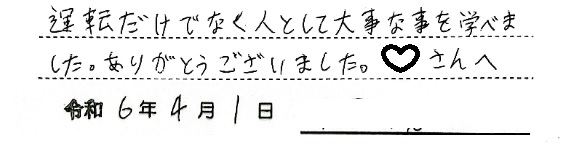 運転だけでなく人として大事な事を学べま
した。ありがとうございました。♡さんへ
令和 6年 4月 1日